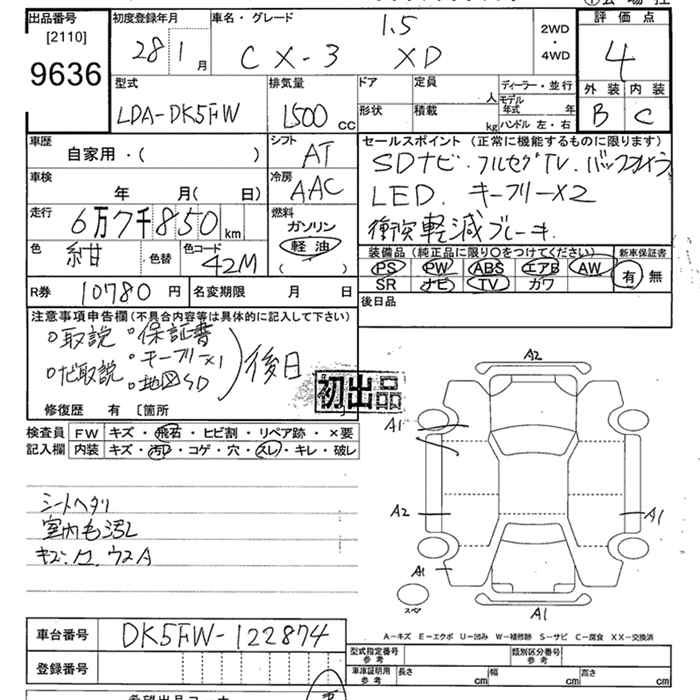 出品番号 初度登録年月 車名・グレード 評価点
[2110] 28 1月 CX-3 1.5 XD 2WD・4WD 4
9636
型式 排気量 ドア 定員 人 ディーラー・並行 外装 内装
LDA-DK5FW 1500 CC 形状 積載 kg モデル年式 年 B C
ハンドル 左・右
車歴 シフト セールスポイント (正常に機能するものに限ります)
自家用・( ) AT SDナビ・フルセグTV. バックカメラ
車検 冷房 LED. キーフリーX2
年 月( 日) AAC 衝突軽減ブレーキ.
走行 6万7千850 km 燃料 ガソリン
軽油
( )
色 紺 色替 色コード 42M
装備品 (純正品に限り○をつけてください) 新車保証書
PS PW ABS エアB AW 有 無
SR ナビ TV カワ
R券 10780 円 名変期限 月 日 後日品
注意事項申告欄 (不具合内容等は具体的に記入して下さい)
○取説 ○保証書
○キーフリーX1
○ナビ取説 ○地図SD 後日
初出品
修復歴 有 [箇所
検査員 FW キズ・飛石・ヒビ割・リペア跡・×要
記入欄 内装 キズ・汚レ・コゲ・穴・スレ・キレ・破レ
A2
A1
シートヘタリ
室内も汚レ
A2 A1
A1
スペア
A1
A－キズ E－エクボ U－凹み W－補修跡 S－サビ C－腐食 XX－交換済
車台番号 DK5FW-122874
型式指定番号 参考 類別区分番号 参考
登録番号 車庫証明用 参考 長さ cm 幅 cm 高さ cm